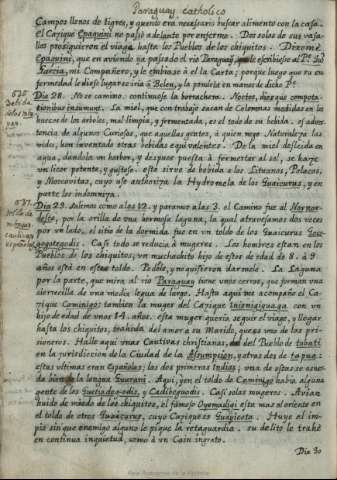 Paraguay catholico
Campos llenos de tigres, y quando era necesario buscar alimento con la casa.
el Cazique Epaquini no pasó adelante por enfermo. Dos solos de sus vasa-
llos prosiguieron el viage hasta los Pueblos de los chiquitos. Dixome
Epaquini, que en aviendo ya passado el rio Paraguay, le escribiesse al P.e
Garcia, mi Compañero, y le embiasse à el la Carta; porque luego que su en-
fermedad le diesse lugar se iria à Belen, y la pondria en manos de dicho P.e
Dia 28. No se caminò. continuose la borrachera. Noctes, diesque compota-
tionibus insumunt. La miel, que con trabajo sacan de Colmenas metidas en los
huecos de los arboles, mal limpia, y fermentada, es el todo de su bebida.
dotencia de algunos Curiosos, que aquellas gentes, à quien nego Naturaleza las
vides, han inventado otras bebidas equivalentes. De la miel desleida en
agua, dandola un hervor, y despues puesta à fermentar al sol, se haze
un licor potente, y gustoso. este sirve de bebida a los Lituanos, Polacos,
y Moscovitas, cuyo uso authoriza la Hydromela de los Guaicurus, y en
parte los indemniza.
Dia 29. Salimos como a las 12. y paramos a las 3. el Camino fue al Nornor-
deste, por la orilla de una hermosa laguna, la qual atravesamos dos veces
por un lado, el sitio de la dormida fue en un toldo de los Guaicurus
gotegodis. Casi todo se reducia à mugeres. Los hombres estan en los
Pueblos de los chiquitos, un muchachito hijo de estos de edad de 8. à 9
años está en este toldo. Pedile, y no quisieron darmele. La Laguna
por la parte, que mira al rio Paraguay tiene unos cerros, que forman una
sierrecilla de una media legua de largo. Hasta aqui nos acompañò el Ca-
zique Caminigo: tambien la muger del Cazique con un
hijo de edad de unos 14. años. esta muger queria seguir el viage, y llegar
hasta los chiquitos, trahida del amor a su Marido, que es uno de los pri-
sioneros. Hallè aqui unas Cautivas christianas, del Pueblo de tobati
en la jurisdiccion de la Ciudad de la Assumpcion, y otras dos de tapua:
estas ultimas eran Españolas; las dos primeras Indias; una de estas se acuer-
da bien de la lengua Guarani. Aqui, en el toldo de Caminigo habia alguna
gente de los y Cadibeguodis. Casi solas mugeres. Avian
huido de miedo de los chiquitos, el famoso esta mas al oriente en
el toldo de otros Guaicurus, cuyo Cazique es Huye el im-
pio sin que enemigo alguno le pique la retaguardia. su delito le trahe
en continua inquietud, como à un Cain ingrato.
Dia 30